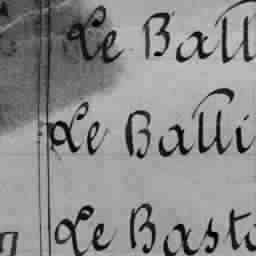 Le Ball
Le Balli
Le Basto